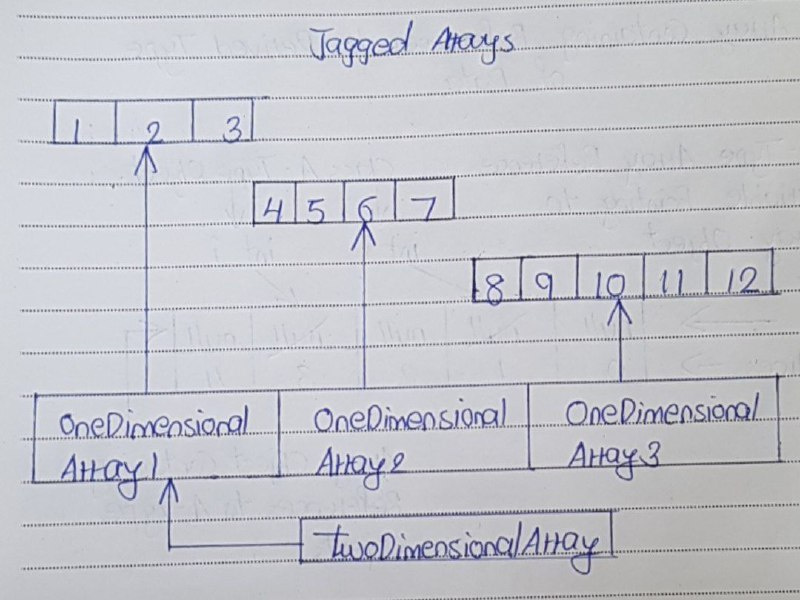 Jagged Arrays
1 2 3
4 5 6 7
8 9 10 11 12
OneDimensional
Array1
OneDimensional
Array2
OneDimensional
Array3
twoDimensionalArray